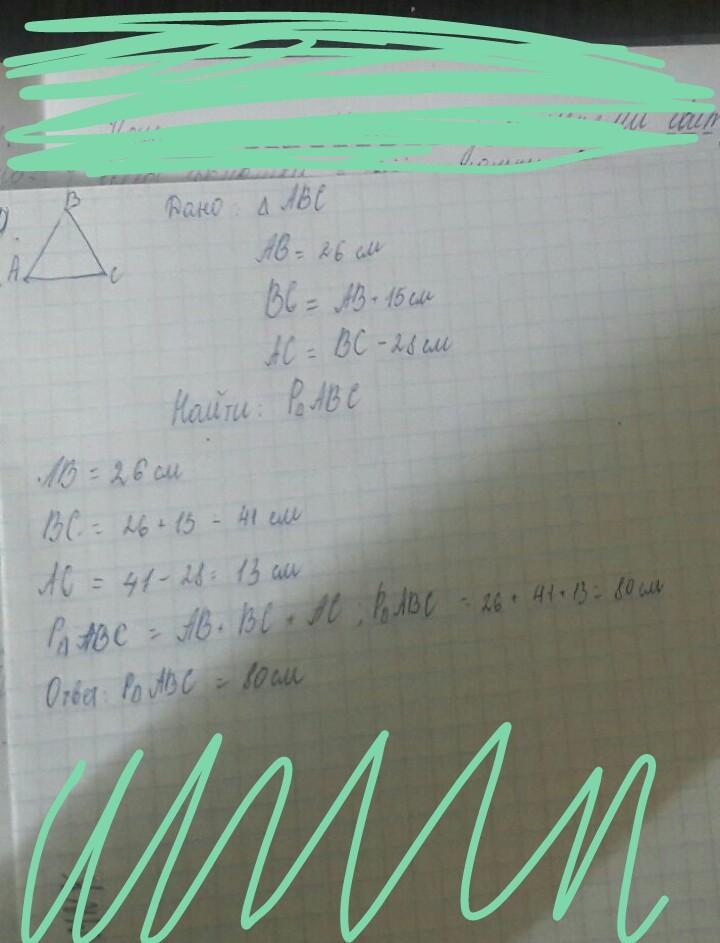 B
A
C
Дано: Δ ABC
AB = 26 см
BC = AB + 15 см
AC = BC - 28 см
Найти: PΔABC
AB = 26 см
BC = 26 + 15 = 41 см
AC = 41 - 28 = 13 см
PΔABC = AB + BC + AC ; PΔABC = 26 + 41 + 13 = 80 см
Ответ: PΔABC = 80 см